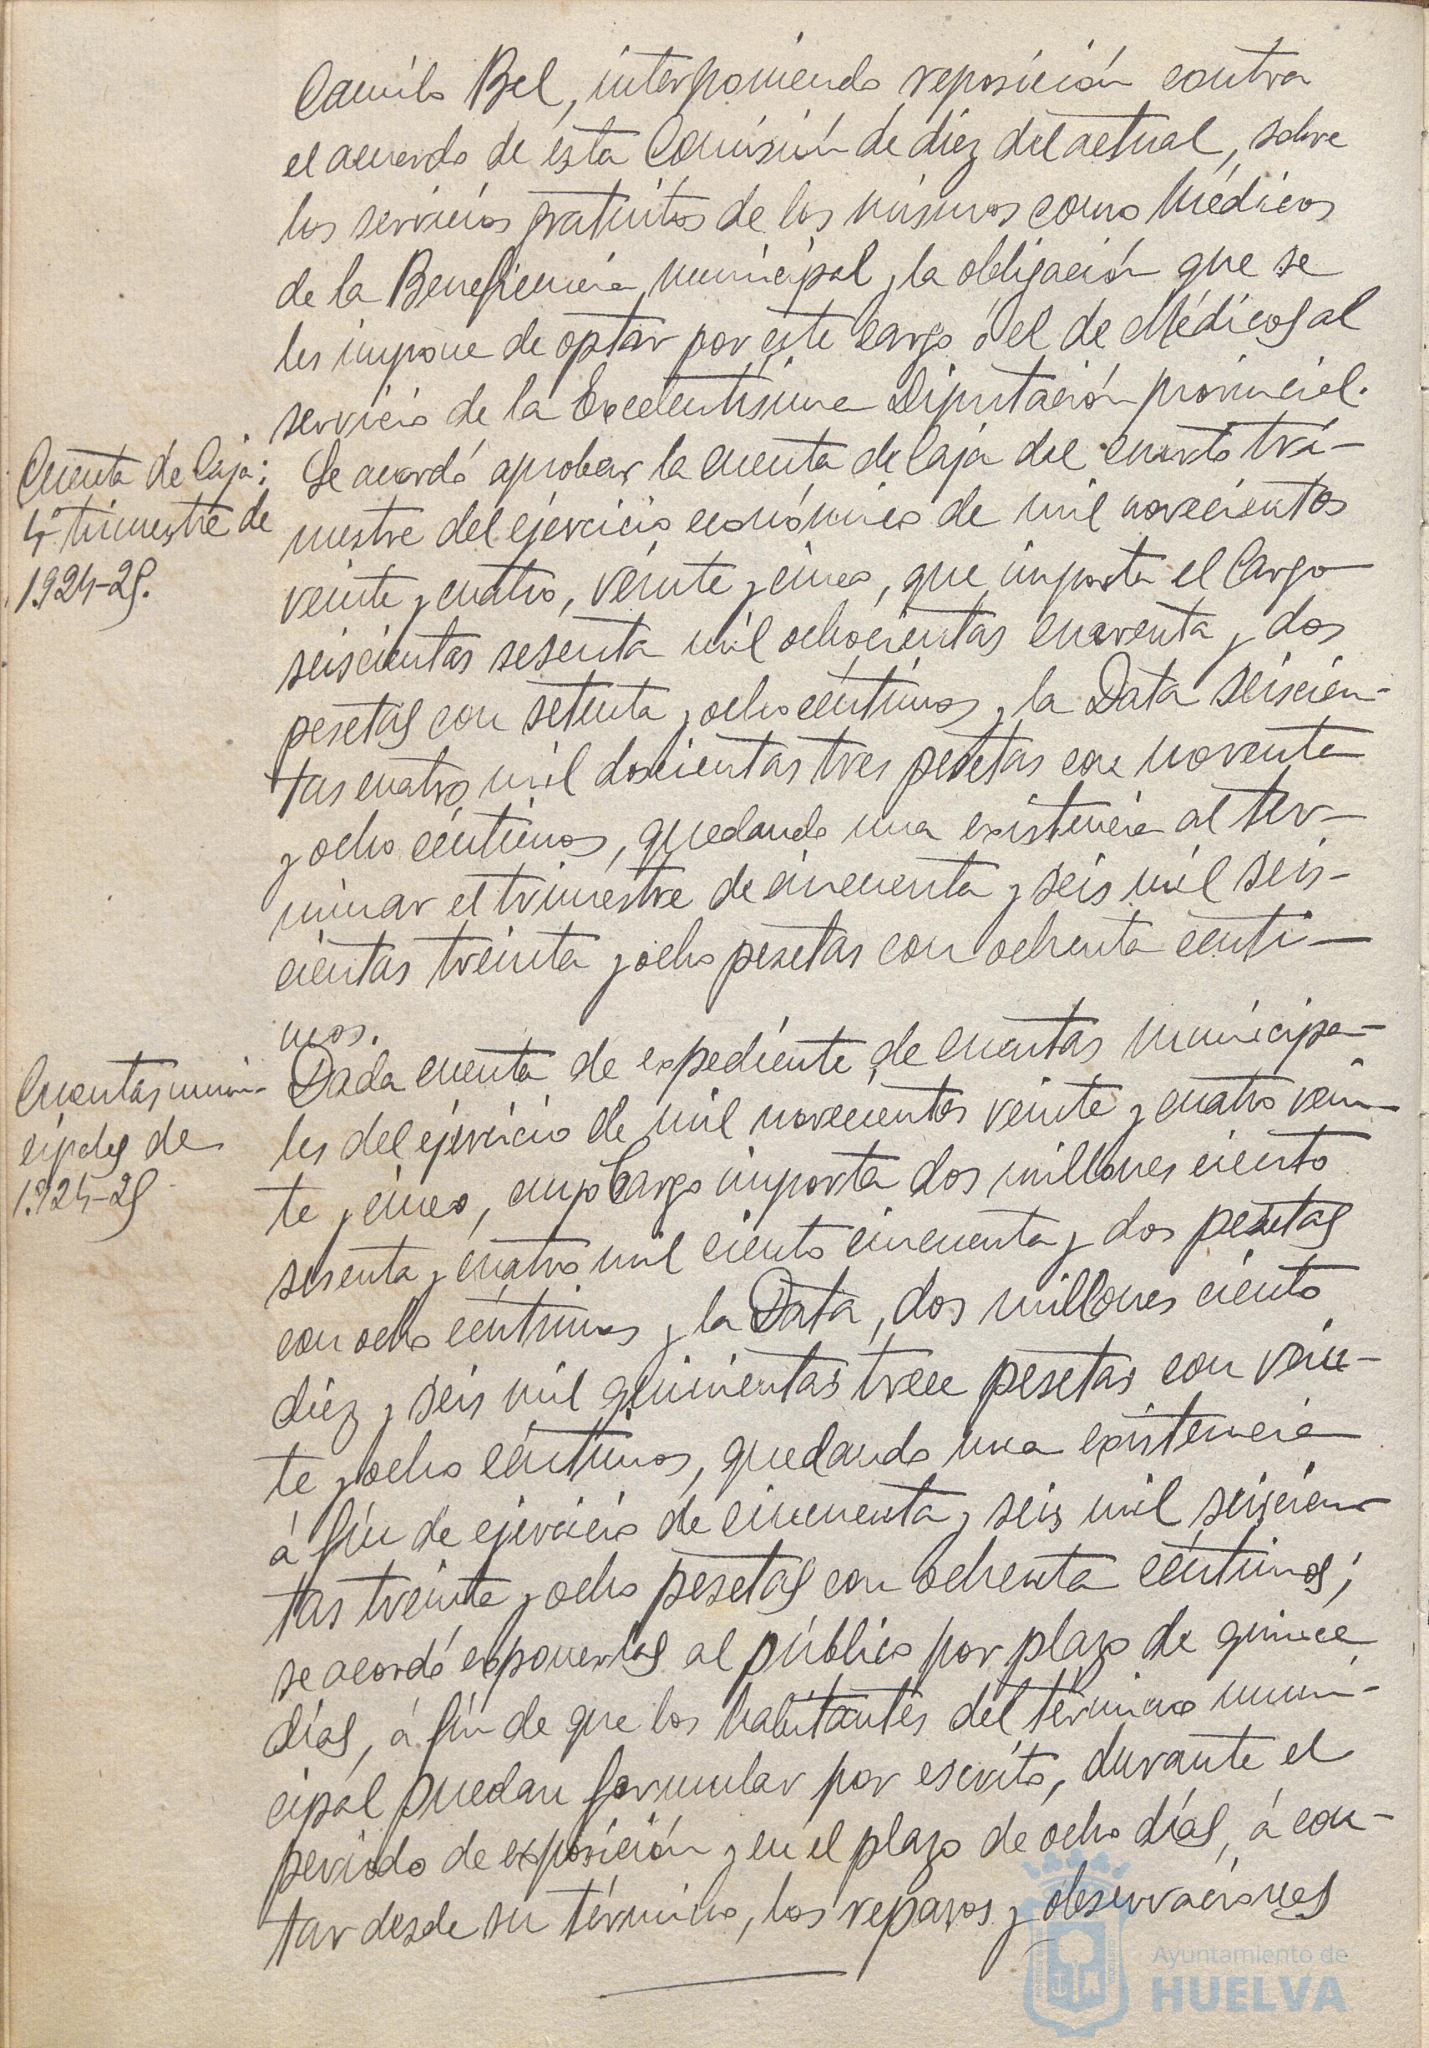 Camilo Bel, interponiendo reposición contra
el acuerdo de esta Comisión de diez del actual, sobre
los servicios gratuitos de los mismos como Médicos
de la Beneficencia municipal y la obligación que se
les impone de optar por este cargo ó el de Médicos al
servicio de la Excelentísima Diputación provincial.
Cuenta de Caja:
4º trimestre de
1924-25.
Se acordó aprobar la cuenta de Caja del cuarto tri-
mestre del ejercicio económico de mil novecientos
veinte y cuatro, veinte y cinco, que importa el Cargo
seiscientas sesenta mil ochocientas cuarenta y dos
pesetas con setenta y ocho céntimos y la Data seiscien-
tas cuatro mil doscientas tres pesetas con noventa
y ocho céntimos, quedando una existencia al ter-
minar el trimestre de cincuenta y seis mil seis-
cientas treinta y ocho pesetas con ochenta cénti-
mos.
Cuentas muni-
cipales de
1924-25
Dada cuenta de expediente de cuentas municipa-
les del ejercicio de mil novecientos veinte y cuatro vein-
te y cinco, cuyo Cargo importa dos millones ciento
sesenta y cuatro mil ciento cincuenta y dos pesetas
con ocho céntimos y la Data, dos millones ciento
diez y seis mil quinientas trece pesetas con vein-
te y ocho céntimos, quedando una existencia
á fín de ejercicio de cincuenta y seis mil seiscien-
tas treinta y ocho pesetas con ochenta céntimos;
se acordó exponerlas al público por plazo de quince
días, á fín de que los habitantes del término muni-
cipal puedan formular por escrito, durante el
periodo de exposición y en el plazo de ocho días, á con-
tar desde su término, los reparos y observaciones
Ayuntamiento de
HUELVA